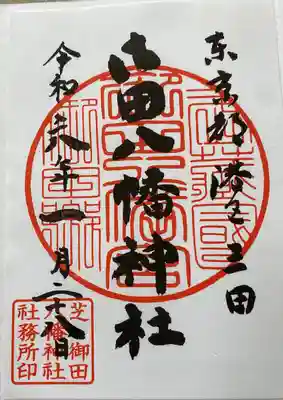 东京都港区三田
御田八幡神社
令和年一月日
芝御田
八幡神社
社務所印